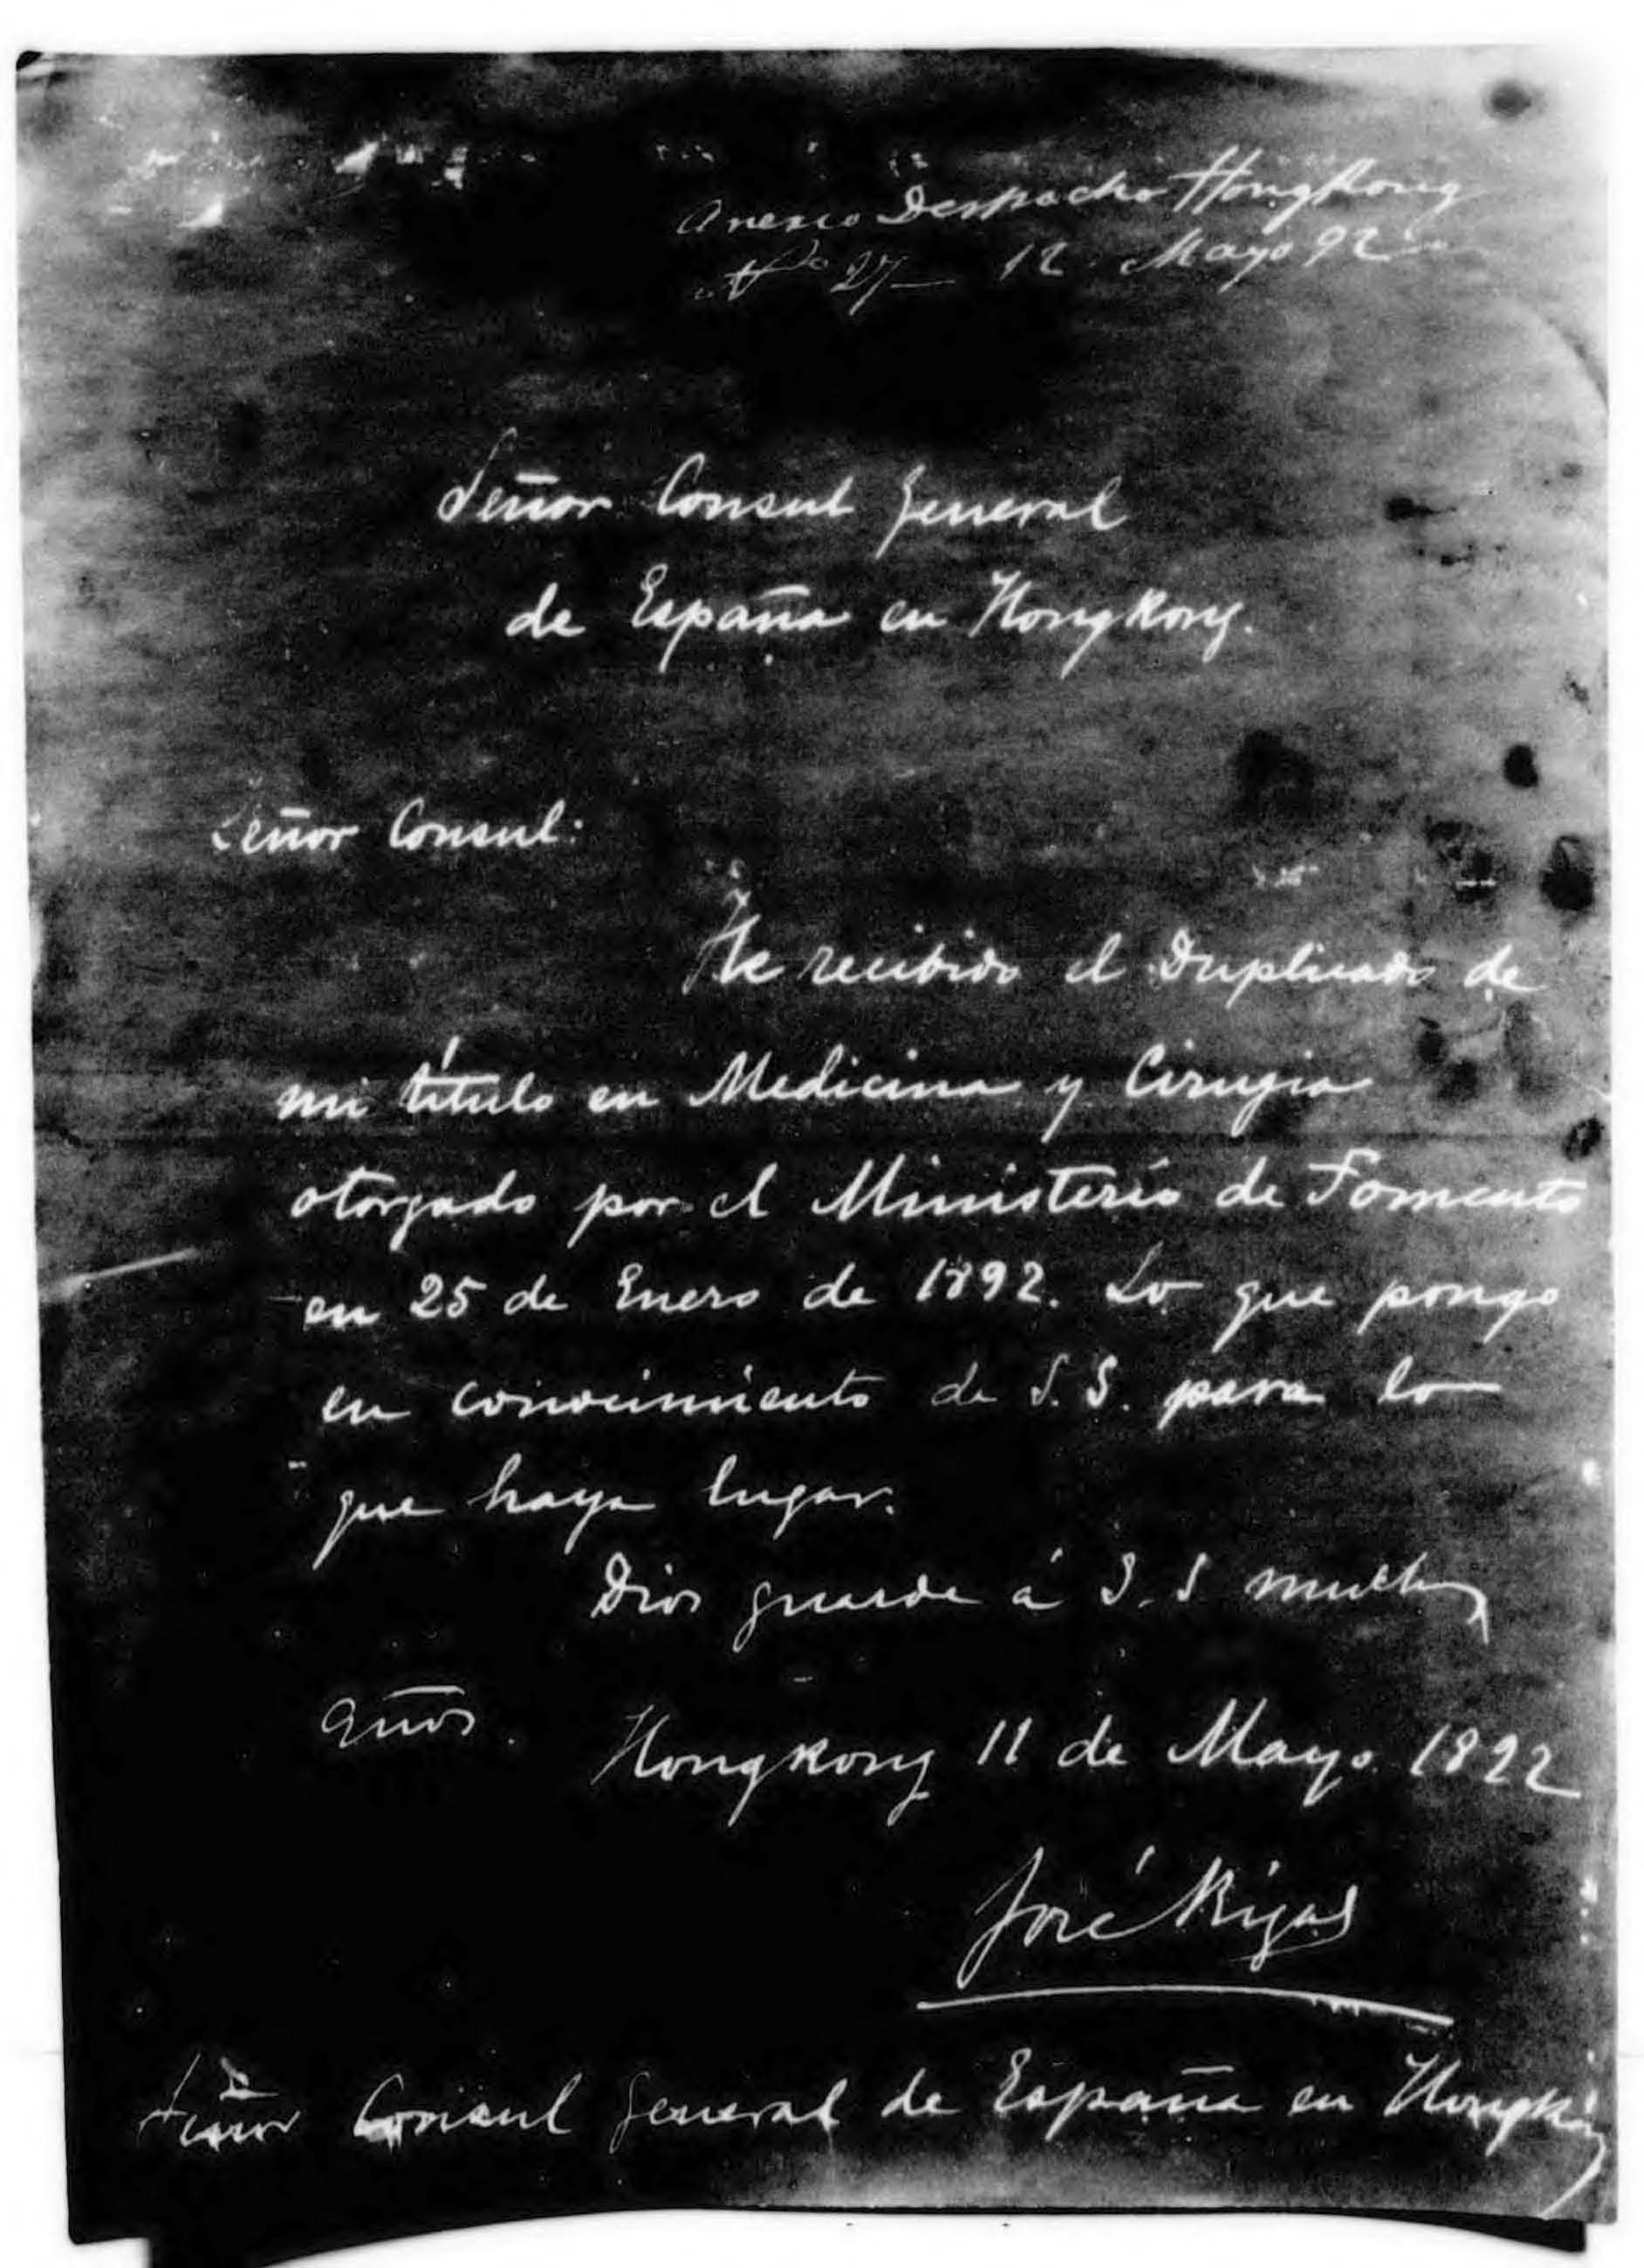 Anexo Despacho Hongkong
Nº 27 12 Mayo 92
Señor Consul General
de España en Hongkong.
Señor Consul:
He recibido el Duplicado de
mi título en Medicina y Cirugia
otorgado por el Ministerio de Fomento
en 25 de Enero de 1892. Lo que pongo
en conocimiento de S. S. para lo
que haya lugar.
Dios guarde á S. S muchos
años. Hongkong 11 de Mayo 1892
José Rizal
Señor Consul General de España en Hongkong